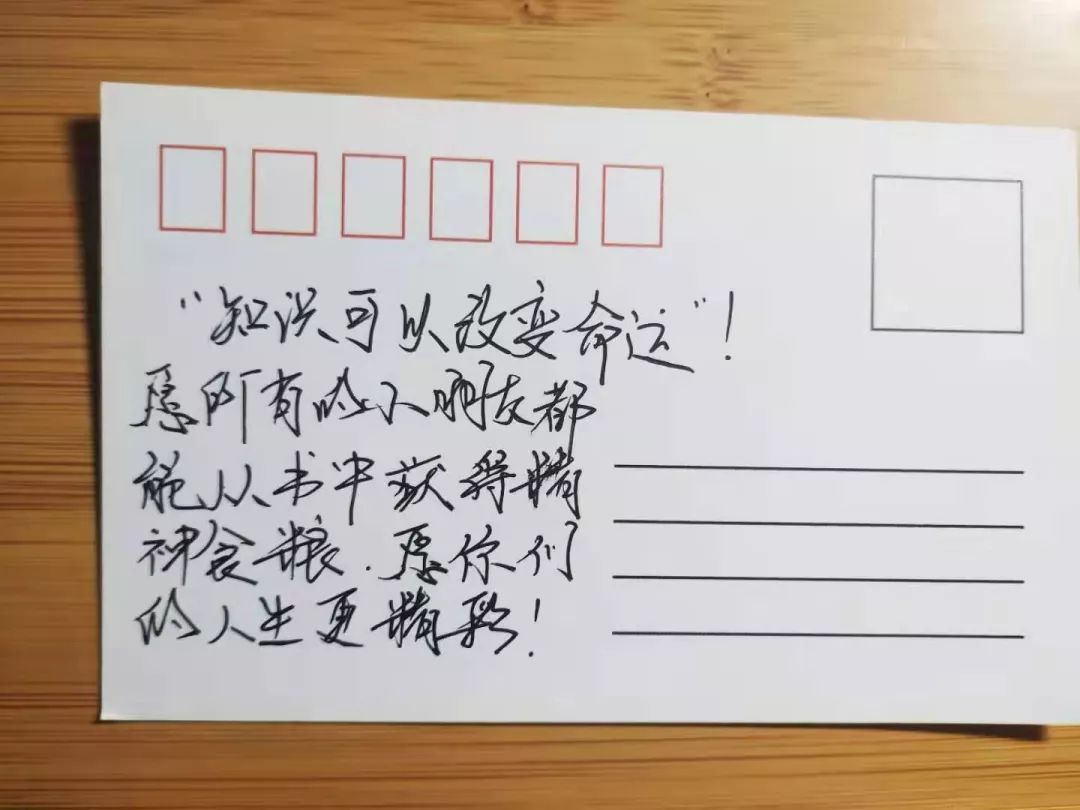 “知识可以改变命运”！
愿所有的小朋友都
能从书中获得精
神食粮.愿你们
的人生更精彩！